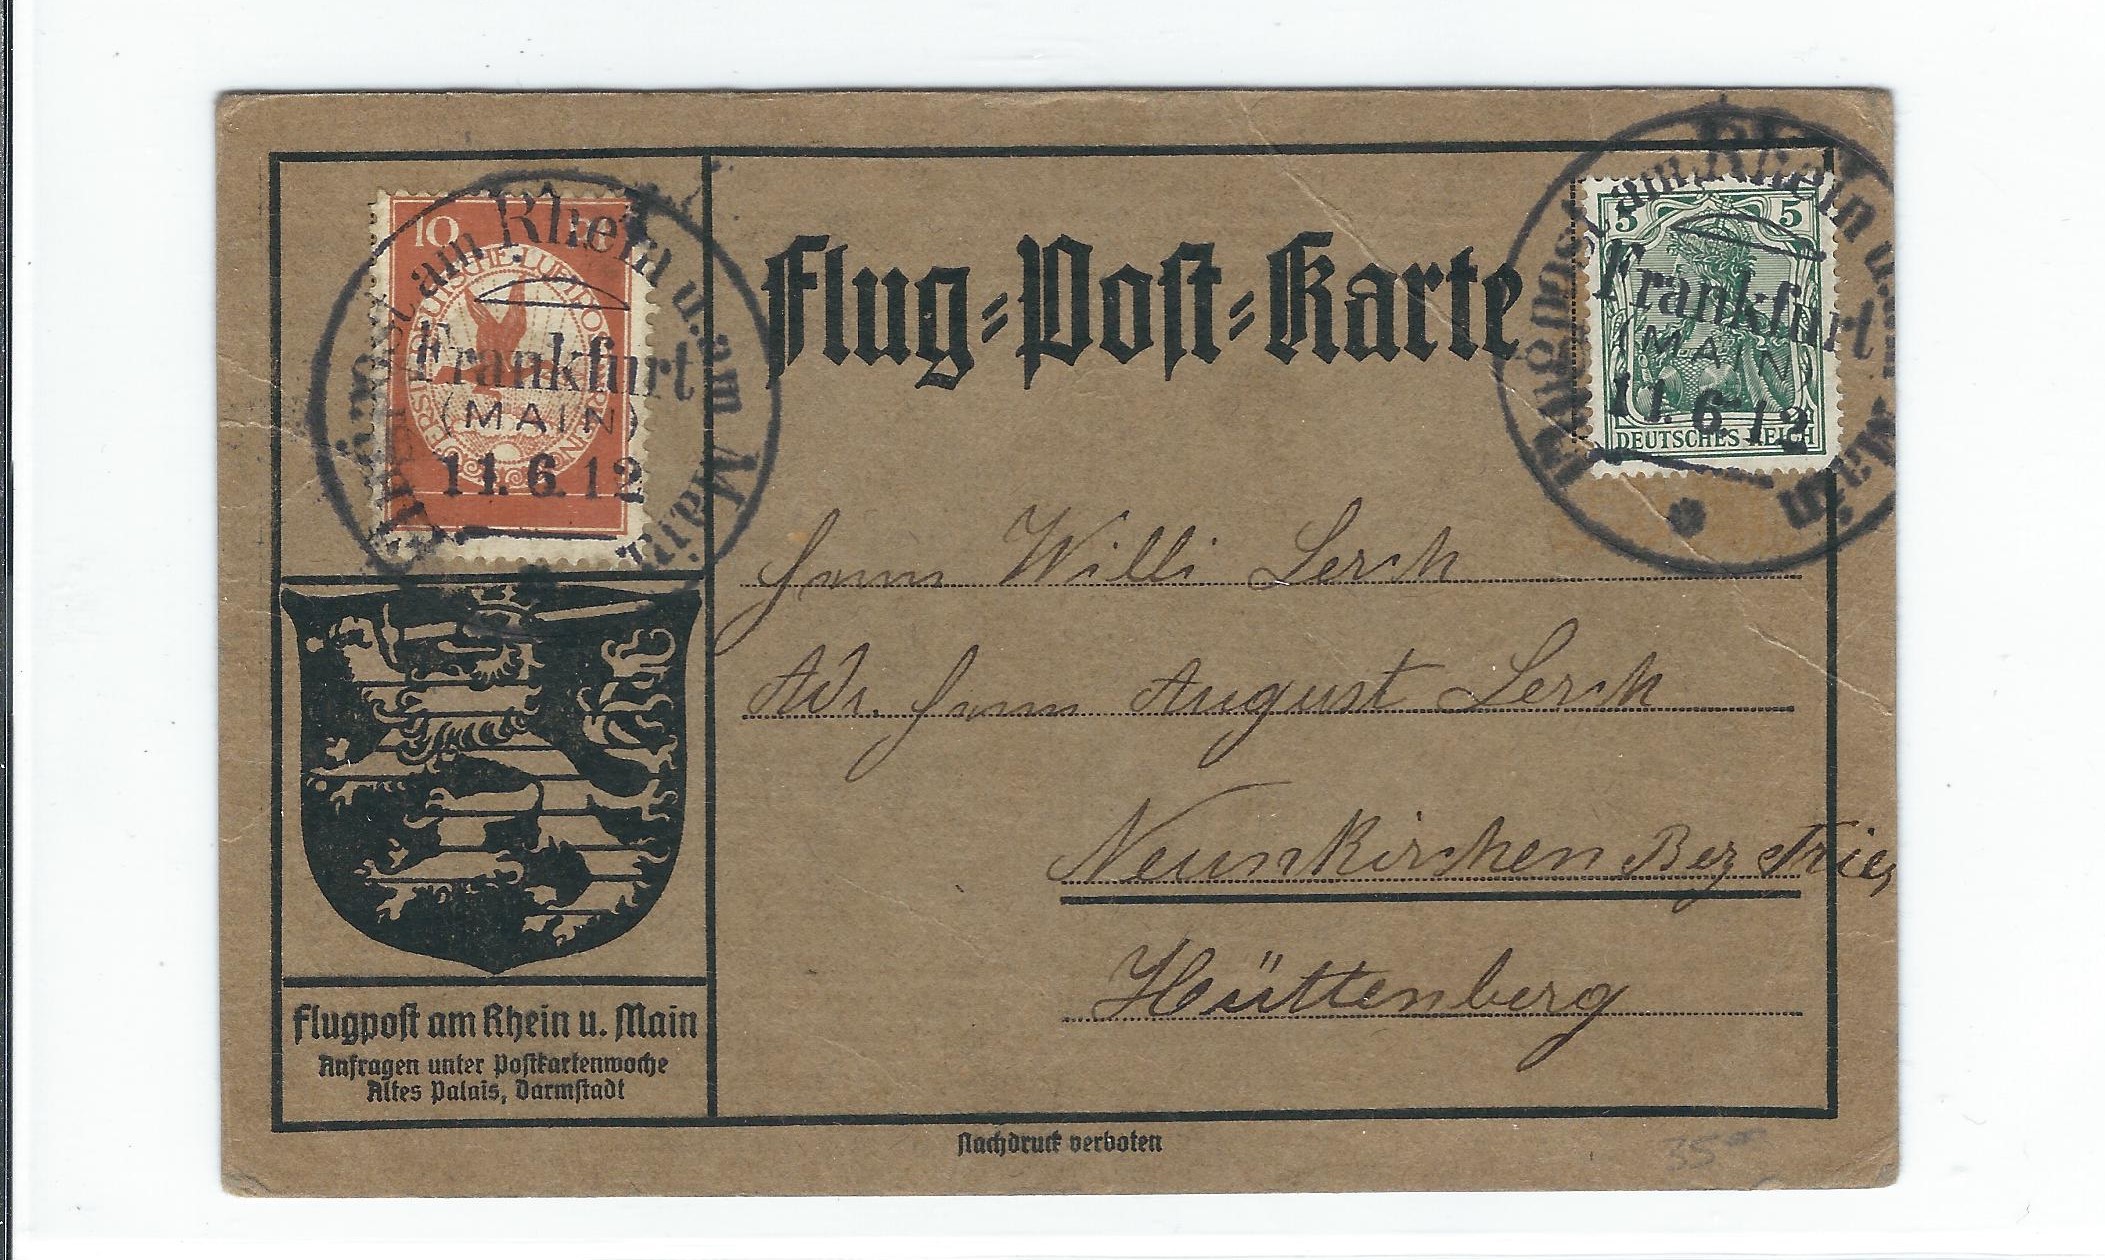 10
Flugpost am Rhein u. am Main
Frankfurt
(MAIN)
11.6.12
Flug=Post=Karte
5 5
DEUTSCHES REICH
Flugpost am Rhein u. am Main
Frankfurt
(MAIN)
11.6.12
Herrn Willi Lerch
Adr. Herrn August Lerch
Neunkirchen Bez Trier
Hüttenberg
Flugpost am Rhein u. Main
Anfragen unter Postkartenwoche
Altes Palais, Darmstadt
Nachdruck verboten
35